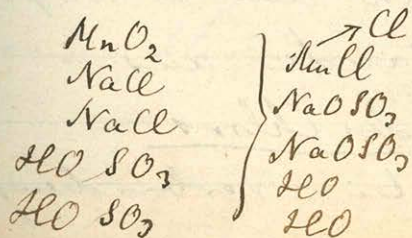 MnO₂
NaCl
NaCl
HO SO₃
HO SO₃
Cl
MnCl
NaO SO₃
NaO SO₃
HO
HO